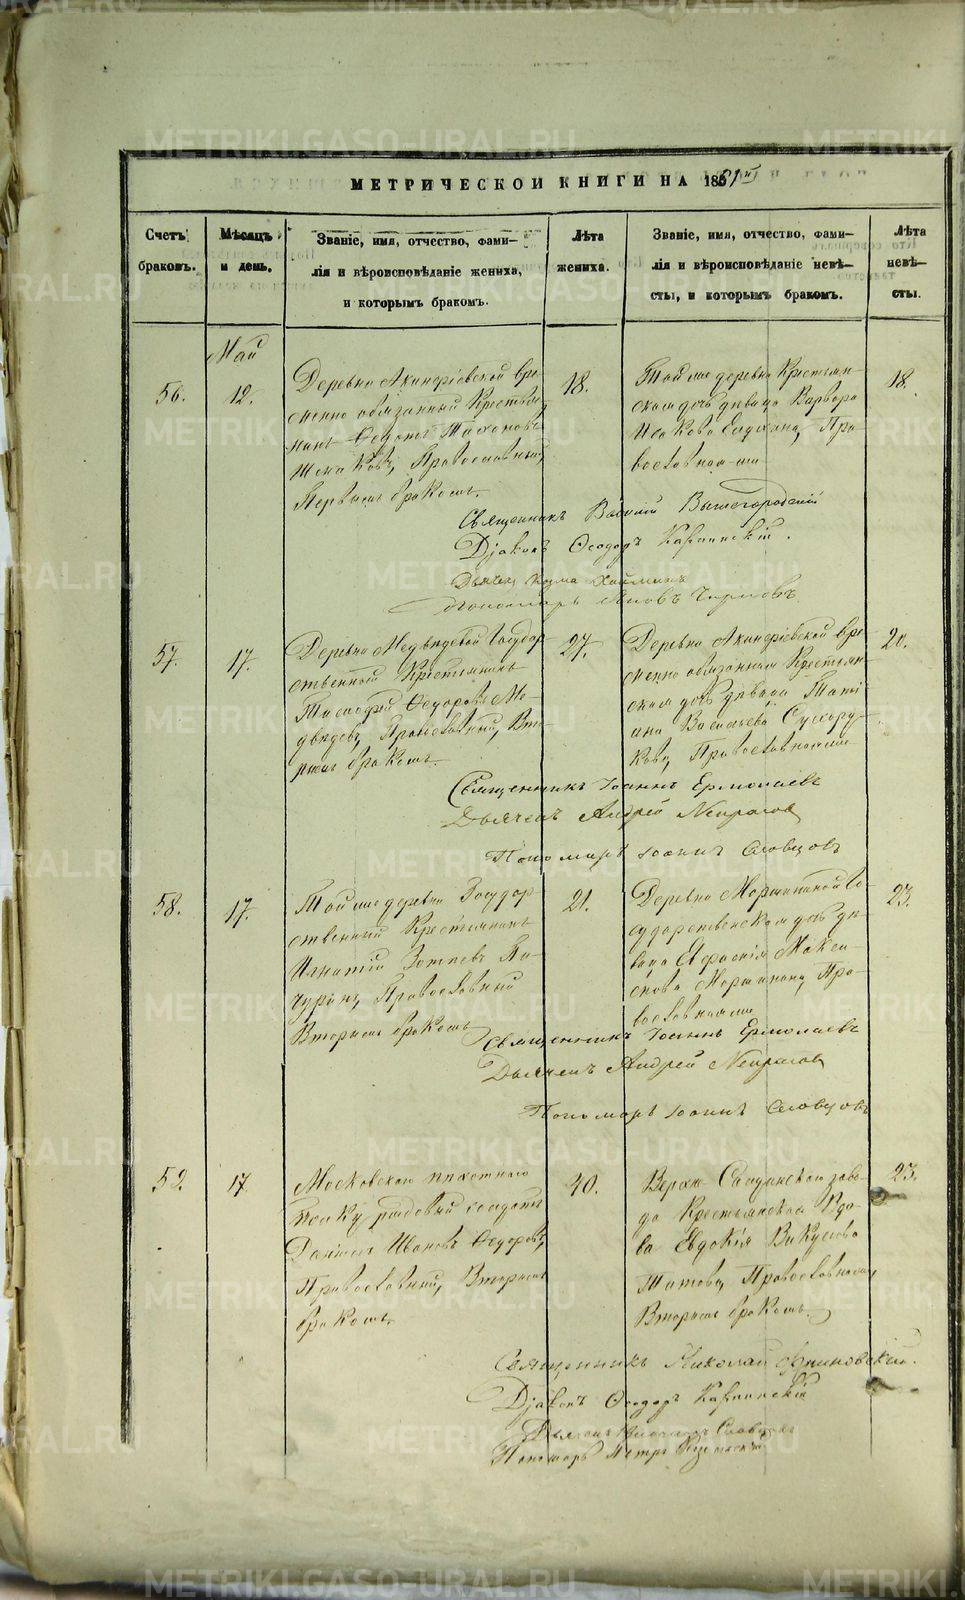 МЕТРИЧЕСКОЙ КНИГИ НА 1861
Счетъ браковъ.
Мѣсяцъ и день.
Званіе, имя, отчество, фами-
лія и вѣроисповѣданіе жениха,
и которымъ бракомъ.
Лѣта
жениха.
Званіе, имя, отчество, фами-
лія и вѣроисповѣданіе невѣ-
сты, и которымъ бракомъ.
Лѣта
невѣ-
сты.
Май
56.
12.
Деревни Акинфіевской вре-
менно обязанный Крестья-
нинъ Федотъ
Православный,
Первымъ бракомъ.
18.
Той же деревни Крестьян-
ская дочь дѣвица Варвара
Исакова Пра-
вославная
18.
Священникъ Василій Вышегородскій
Діаконъ Ѳеодоръ Карпинскій.
Дьячекъ Козма
Пономарь
57.
17.
Деревни Медвѣдевой Государ-
ственный Крестьянинъ
Тимофей Федоровъ Ме-
двѣдевъ, Православный, Вто-
рымъ бракомъ.
27.
Деревни Акинфіевской вре-
менно обязанная Крестьян-
ская дочь дѣвица Тать-
яна Васильева Сухору-
кова, Православная
20.
Священникъ Іоаннъ Ермолаевъ
Дьячекъ Андрей Некрасов
Пономарь Іоаннъ Словцовъ
58.
17.
Той же деревни Государ-
ственный Крестьянинъ
Игнатій Зотеевъ Пи-
чугинъ, Православный
Вторымъ бракомъ
21.
Деревни Моршининой Го-
сударственская дочь дѣ-
вица Евфросинія Макси-
мова Моршинина, Пра-
вославная
23.
Священникъ Іоаннъ Ермолаевъ
Дьячекъ Андрей Некрасов
Пономарь Іоаннъ Словцовъ
59.
17.
Московскаго пѣхотнаго
полку рядовый солдатъ
Даніилъ Ивановъ Федоровъ,
Православный, Вторымъ
бракомъ.
40.
Верхне Салдинскаго заво-
да Крестьянская Вдо-
ва Евдокія Викулова
Титова, Православная,
Вторымъ бракомъ.
23.
Священникъ Николай
Діаконъ Ѳеодоръ Карпинскій
Дьячекъ Словцовъ
Пономарь Петръ
METRIKI.GASO-URAL.RU